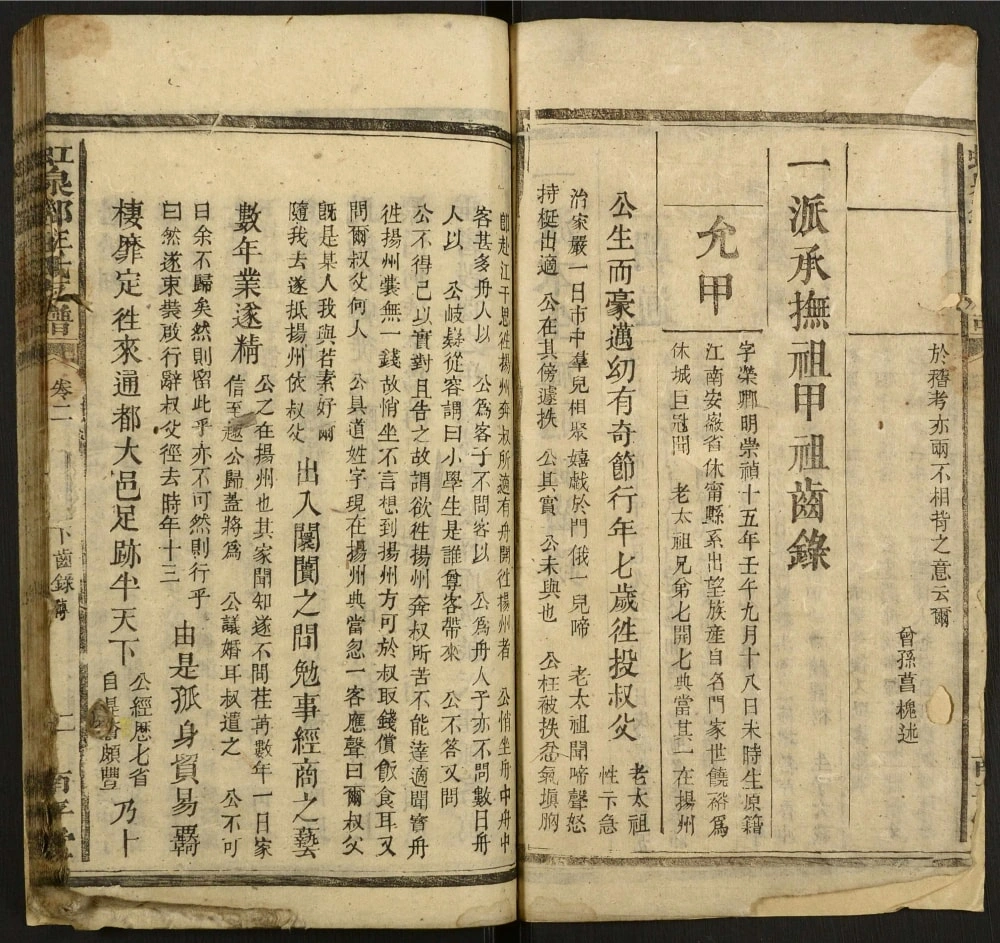 於稽考亦兩不相背之意云爾
曾孫菖槐述
一派承撫祖甲祖齒錄
允甲
字榮卿明崇禎十五年壬午九月十八日未時生原籍
江南安徽省休甯縣系出望族產自名門家世饒裕爲
休城巨冠聞 老太祖兄弟七開七典當其一在揚州
公生而豪邁幼有奇節行年七歲徃投叔父
老太祖
性卞急
治家嚴一日市中羣兒相聚嬉戲於門俄一兒啼 老太祖聞啼聲怒
持梃出適 公在其傍遽抶 公其實 公未與也 公枉被抶忿氣塡胸
卽赴江干思徃揚州奔叔所適有舟開徃揚州者 公悄坐舟中舟中
客甚多舟人以 公爲客子不問客以 公爲舟人子亦不問數日舟
人以 公岐嶷從容謂曰小學生是誰尊客帶來 公不答又問
公不得已以實對且告之故謂欲徃揚州奔叔所苦不能達適聞寳舟
徃揚州橐無一錢故悄坐不言想到揚州方可於叔取錢償飯食耳又
問爾叔父何人 公具道姓字現在揚州典當忽一客應聲曰爾叔父
旣是某人我與若素好爾
隨我去遂抵揚州依叔父
出入闤闠之間勉事經商之藝
數年業遂精
公之在揚州也其家聞知遂不問茬苒數年一日家
信至趣公歸蓋將爲 公議婚耳叔道之 公不可
曰余不歸矣然則留此乎亦不可然則行乎
曰然遂束裝啟行辭叔父徑去時年十三
由是孤身貿易覊
棲靡定徃來通都大邑足跡半天下
公經歷七省
自是囊頗豐
乃卜
卷二
下齒錄傳
二